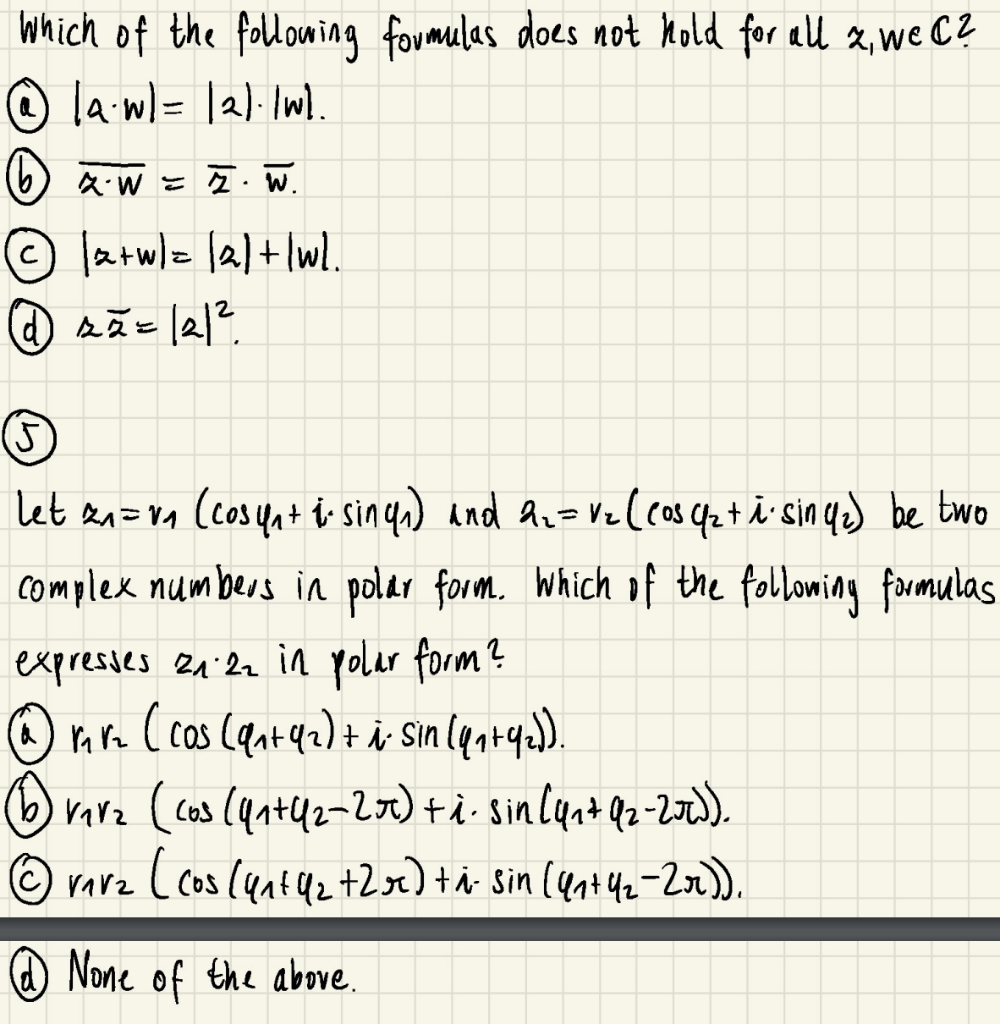 Which of the following formulas does not hold for all z, w ∈ ℂ?
ⓐ |z·w| = |z|·|w|.
ⓑ \overline{z·w} = \overline{z} · \overline{w}.
ⓒ |z+w| = |z|+|w|.
ⓓ z\overline{z} = |z|².
⑤
Let z₁ = r₁ (cos φ₁ + i· sin φ₁) and z₂ = r₂ (cos φ₂ + i· sin φ₂) be two
complex numbers in polar form. Which of the following formulas
expresses z₁·z₂ in polar form?
ⓐ r₁ r₂ (cos (φ₁+φ₂) + i· sin (φ₁+φ₂)).
ⓑ r₁r₂ (cos (φ₁+φ₂−2π) + i· sin (φ₁+φ₂−2π)).
ⓒ r₁r₂ (cos (φ₁+φ₂+2π) + i· sin (φ₁+φ₂−2π)).
ⓓ None of the above.